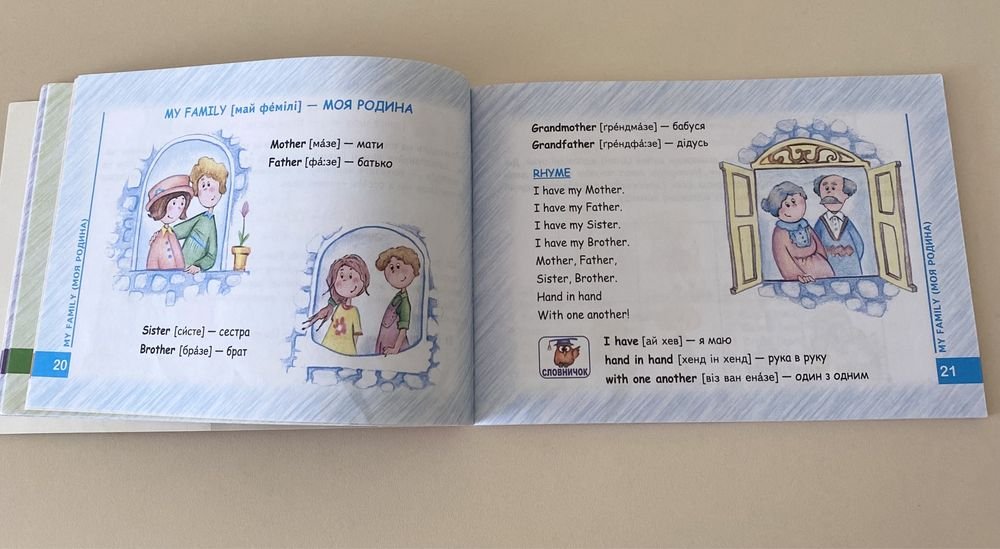 MY FAMILY [май фéмілі] — МОЯ РОДИНА
Mother [мáзе] — мати
Father [фá:зе] — батько
Sister [си́сте] — сестра
Brother [брáзе] — брат
MY FAMILY (МОЯ РОДИНА)
20
Grandmother [ґрéндмáзе] — бабуся
Grandfather [ґрéндфá:зе] — дідусь
RHYME
I have my Mother.
I have my Father.
I have my Sister.
I have my Brother.
Mother, Father,
Sister, Brother.
Hand in hand
With one another!
СЛОВНИЧОК
I have [ай хев] — я маю
hand in hand [хенд ін хенд] — рука в руку
with one another [віз ван енáзе] — один з одним
MY FAMILY (МОЯ РОДИНА)
21